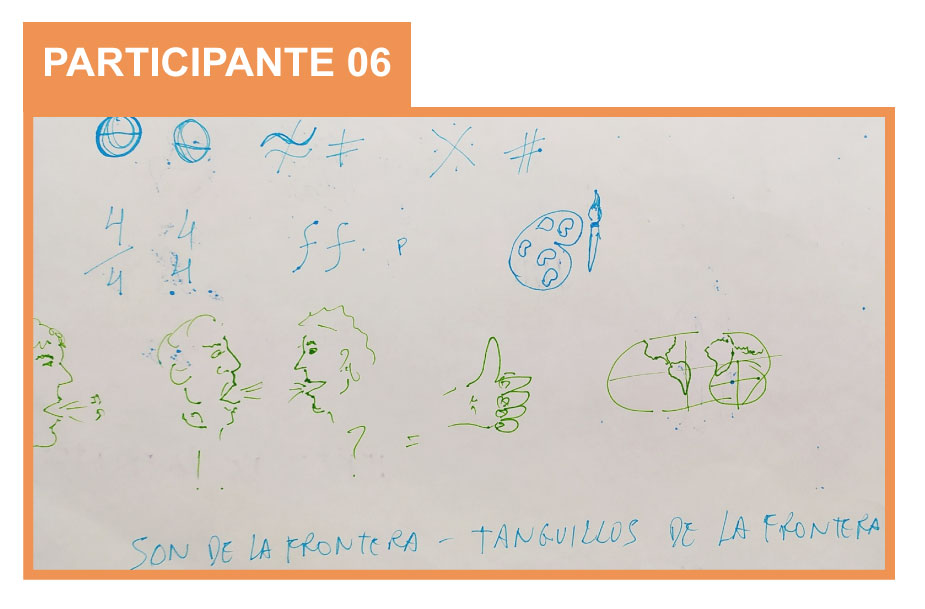 PARTICIPANTE 06
≈ ≠ #
4 4
4 4
ff. p
! ? =
SON DE LA FRONTERA - TANGUILLOS DE LA FRONTERA